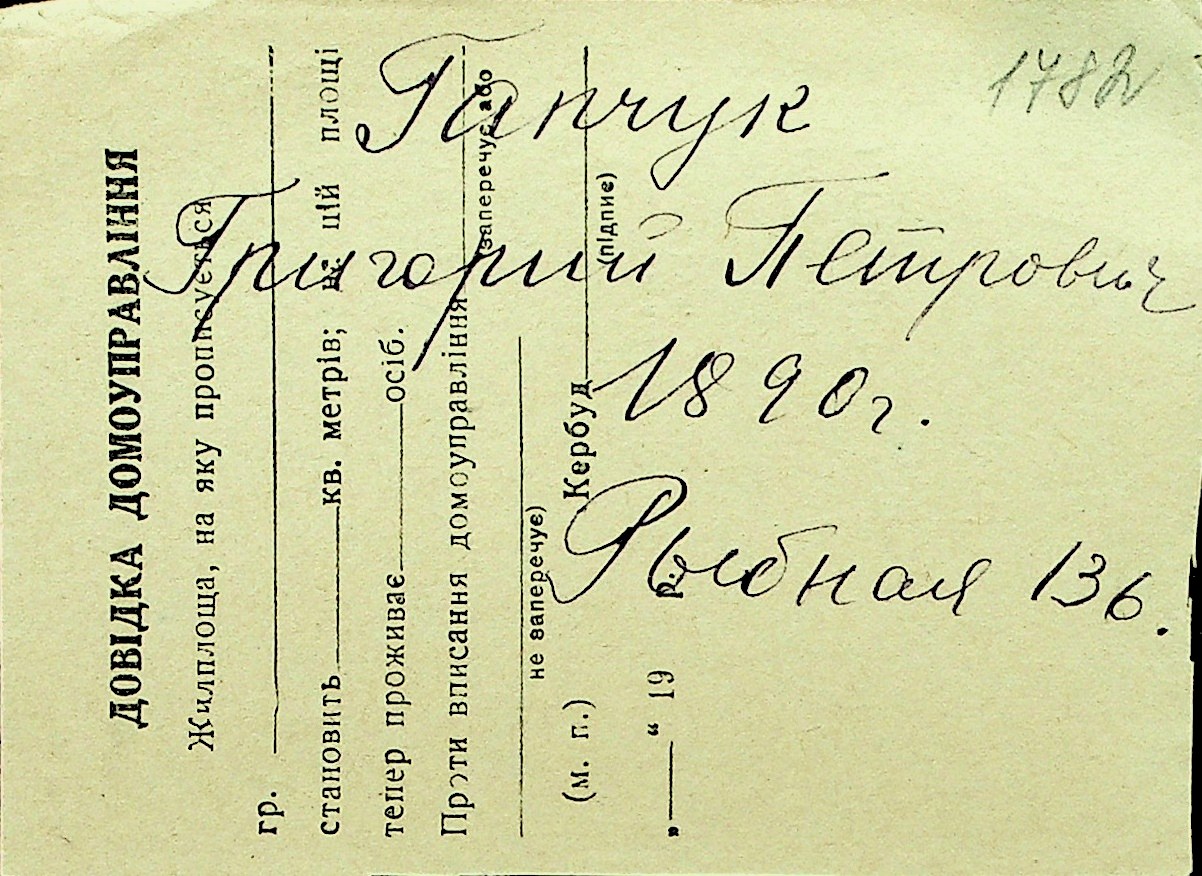 1782
Гапчук
Григорий Петрович
1890г.
Рыбная 136.
ДОВІДКА ДОМОУПРАВЛІННЯ
Жилплоща, на яку прописується
гр.
становить кв. метрів; на цій площі
тепер проживає осіб.
Проти вписання домоуправління
(заперечує або
не заперечує)
(м. п.) Кербуд
(підпис)
„ “ 19 р.